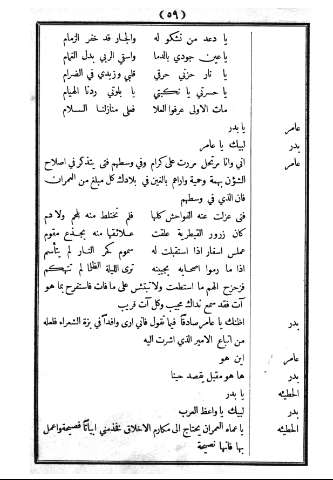 (٥٩)
يا دعد من نشكو له والجار قد خفر الزمام
يا عين جودي بالدما واسقي الربي بدل الغمام
يا نار حزني حرقي قلبي وزيدي في الضرام
يا حسرتي يا نكبتي يا بلوتي ردنا الهيام
مات الاولى عرفوا العلا فعلى منازلنا السلام
عامر يا بدر
بدر لبيك يا عامر
عامر اني وانا مرتحل مررت على كرام وفي وسطهم فتى يتذكر في اصلاح
الشؤون بهمة وحمية واراهم بالغين في بلادك كل مبلغ من العمران
فان الذي في وسطهم
فتى عزلت عنه الفواحش كلها فلم تختلط منه بلحم ولا دم
كان زرور القبطرية علقت علائقها منه بجذع مقوم
عملس اسفار اذا استقبلت له سموم كحر النار لم يتأثم
اذا ما رموا اصحابه بجبينه ترى الليلة الظلما لم تتهكم
فزحزح الهم ما استطعت ولا تبتئس على ما فات فاستفرح بما هو
آت فقد سمع نداك مجيب وكل آت قريب
بدر اظنك يا عامر صادقاً فيما تقول فاني ارى وافداً في بزة الشعراء فلعله
من اتباع الامير الذي اشرت اليه
عامر اين هو
بدر ها هو مقبل يقصد حينا
الحطيئه يا بدر
بدر لبيك يا واعظ العرب
الحطيئه يا عماد العمران يحتاج الى مكارم الاخلاق فخذ مني ابياتاً فصيحة واعمل
بها فانها نصيحة